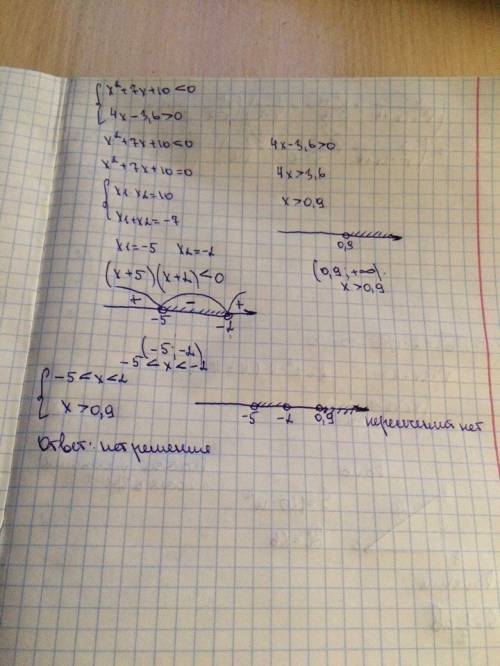 x²+7x+10<0
4x-3,6>0
x²+7x+10<0
x²+7x+10=0
x1 x2=10
x1+x2=-7
x1=-5 x2=-2
(x+5)(x+2)<0
+ - +
-5 -2
(-5; -2)
-5<x<-2
4x-3,6>0
4x>3,6
x>0,9
0,9
(0,9; +∞)
x>0,9
-5<x<2
x>0,9
-5 -2 0,9 пересечений нет
Ответ: нет решения